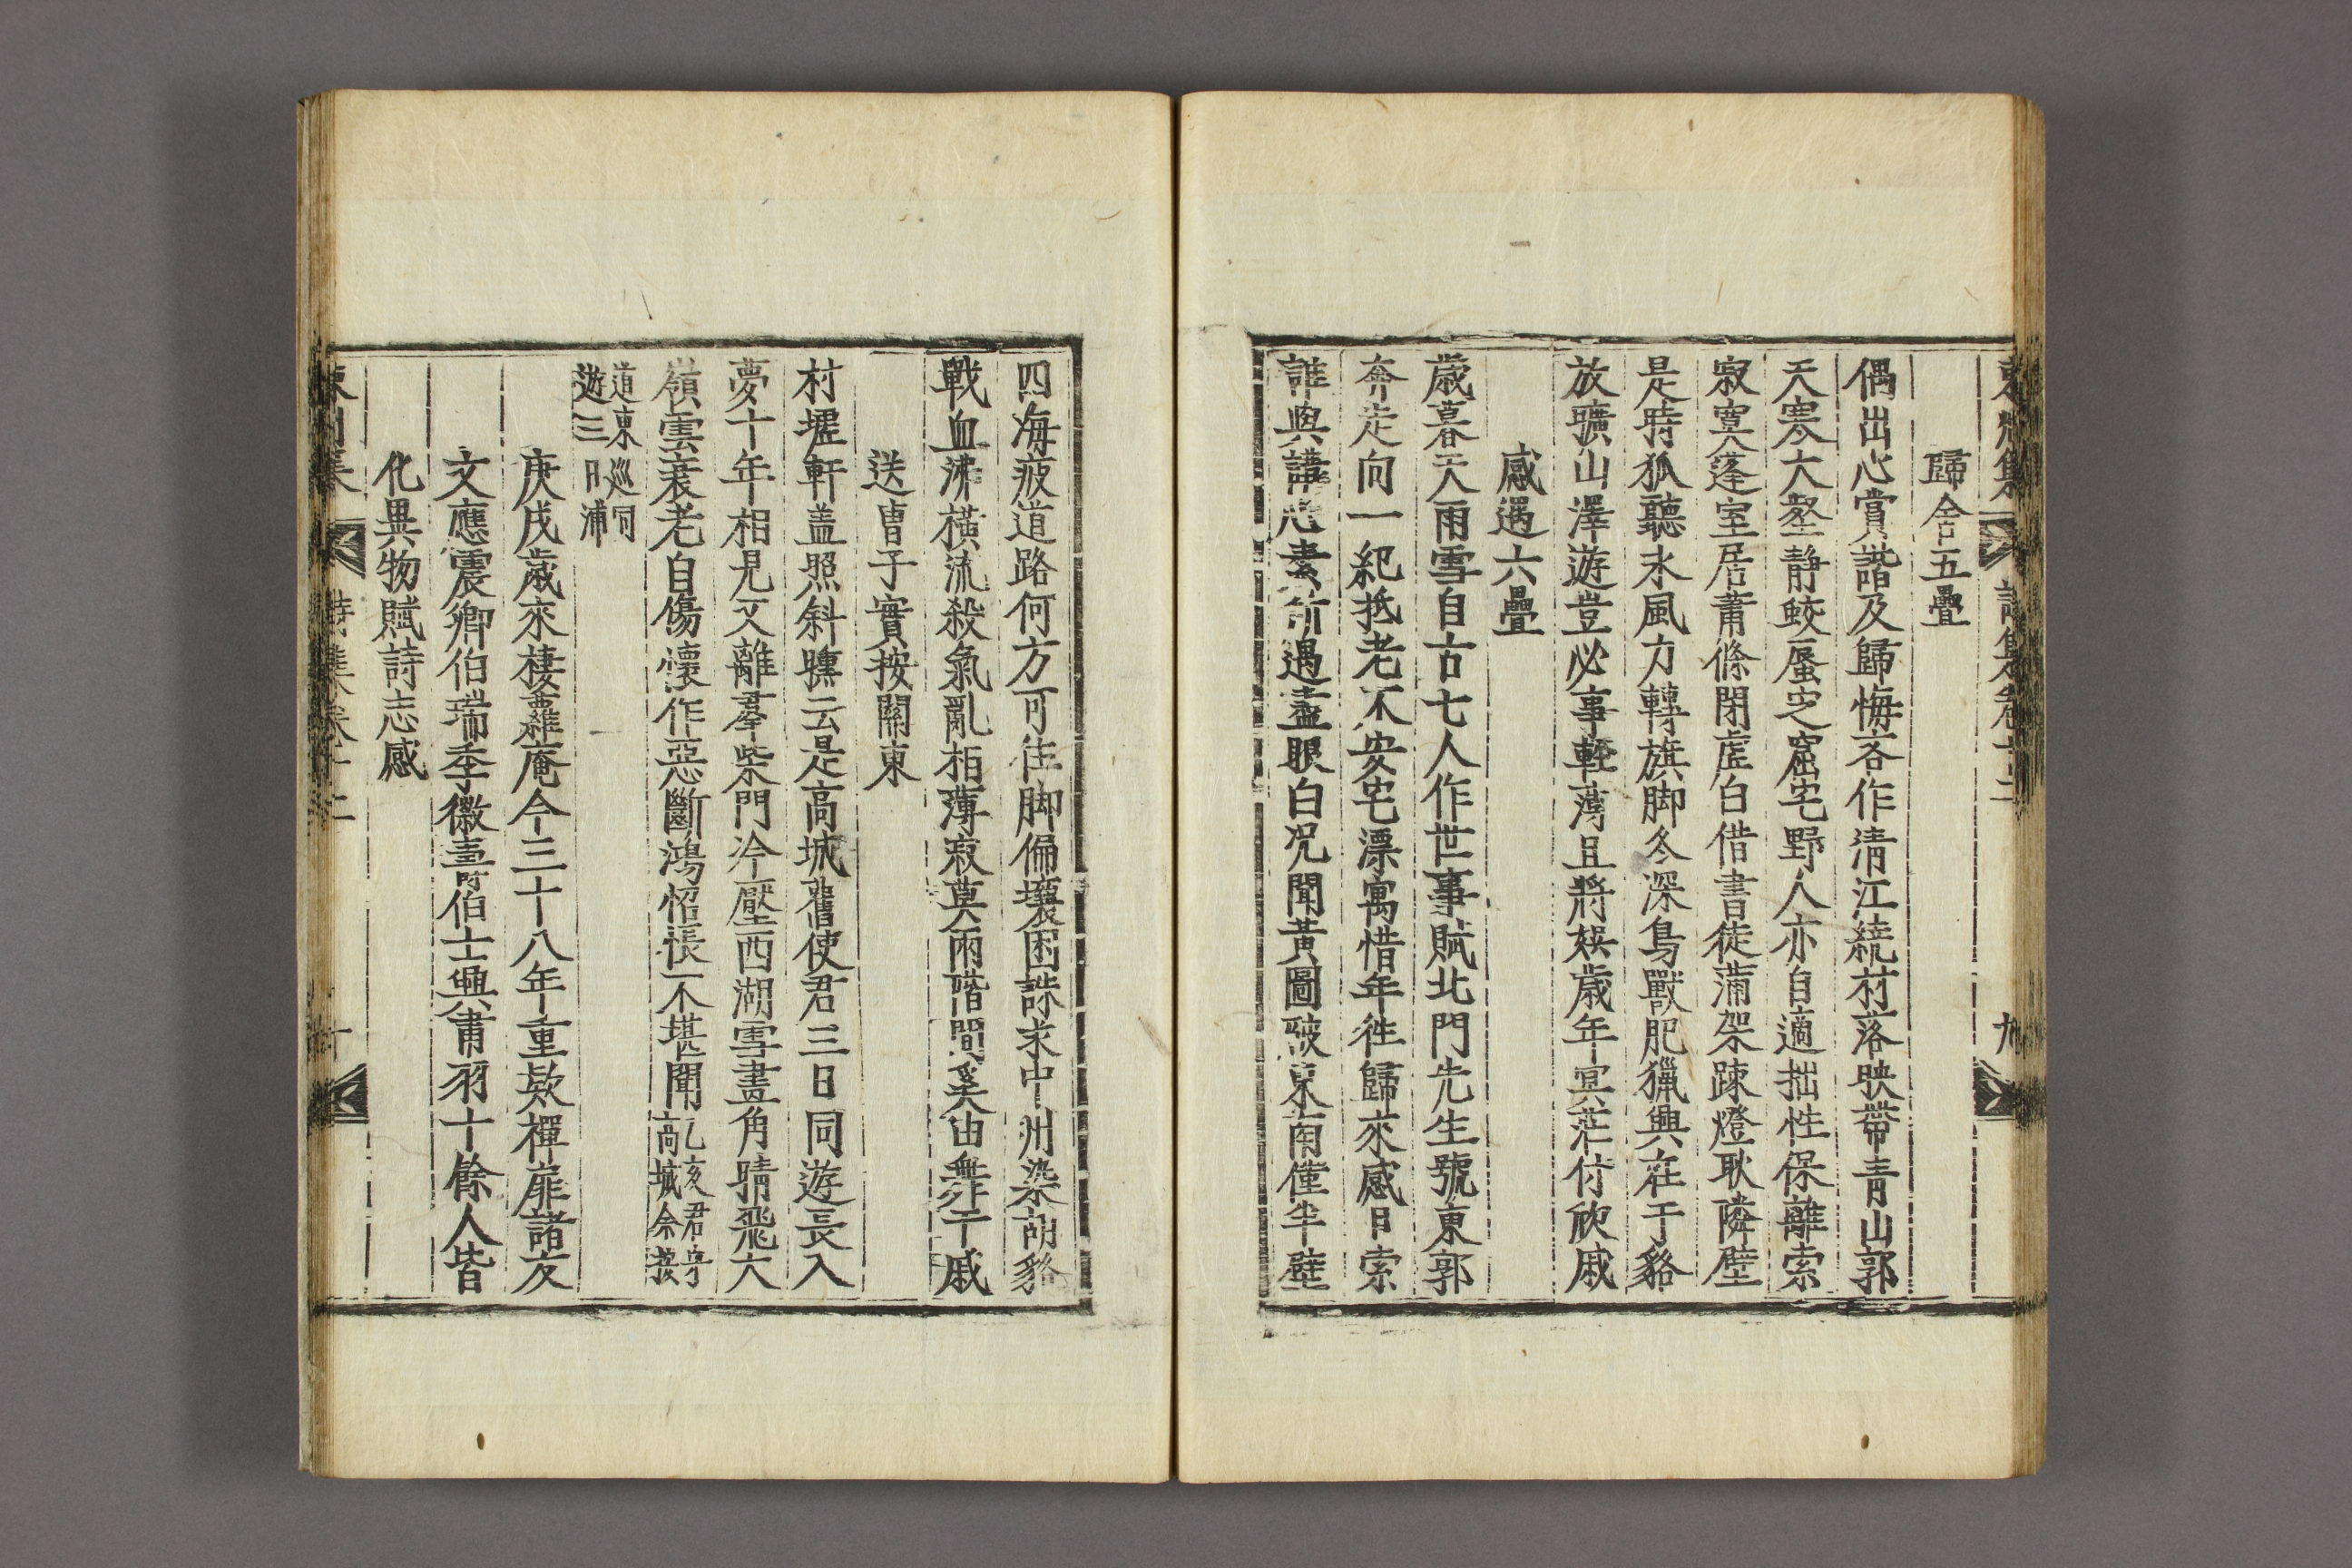 歸舍五疊
偶出心賞諧及歸悔吝作清江繞村落映帶青山郭
天寒大壑靜蛟蜃定窟宅野人亦自適拙性保離索
寂寞蓬室居蕭條閉虛白借書徒滿架踈燈耿隣壁
是時狐聽氷風力轉旗脚冬深鳥獸肥獵興在于貉
放曠山澤遊豈必事輕薄且將娛歲年冥茫付欣戚
感遇六疊
歲暮天雨雪自古七人作世事賦北門先生號東郭
奔走向一紀抵老不安宅漂寓惜年徃歸來感日索
誰與講心素所遇盡眼白况聞黃圖破東南僅半壁
四海疲道路何方可住脚偏壤困誅求中州染胡貉
戰血沸橫流殺氣亂相薄寂莫兩階間奚由舞干戚
送曺子實按關東
村墟軒盖照斜曛云是高城舊使君三日同遊長入
夢十年相見又離羣柴門冷壓西湖雪畫角晴飛大
嶺雲衰老自傷懷作惡斷鴻怊悵不堪聞乙亥君守高城余按
道東巡同遊三日浦
庚戌歲來棲蘿庵今三十八年重欵禪扉諸友
文應震卿伯瑞季徽喜哿伯士興甫羽十餘人皆
化異物賦詩志感